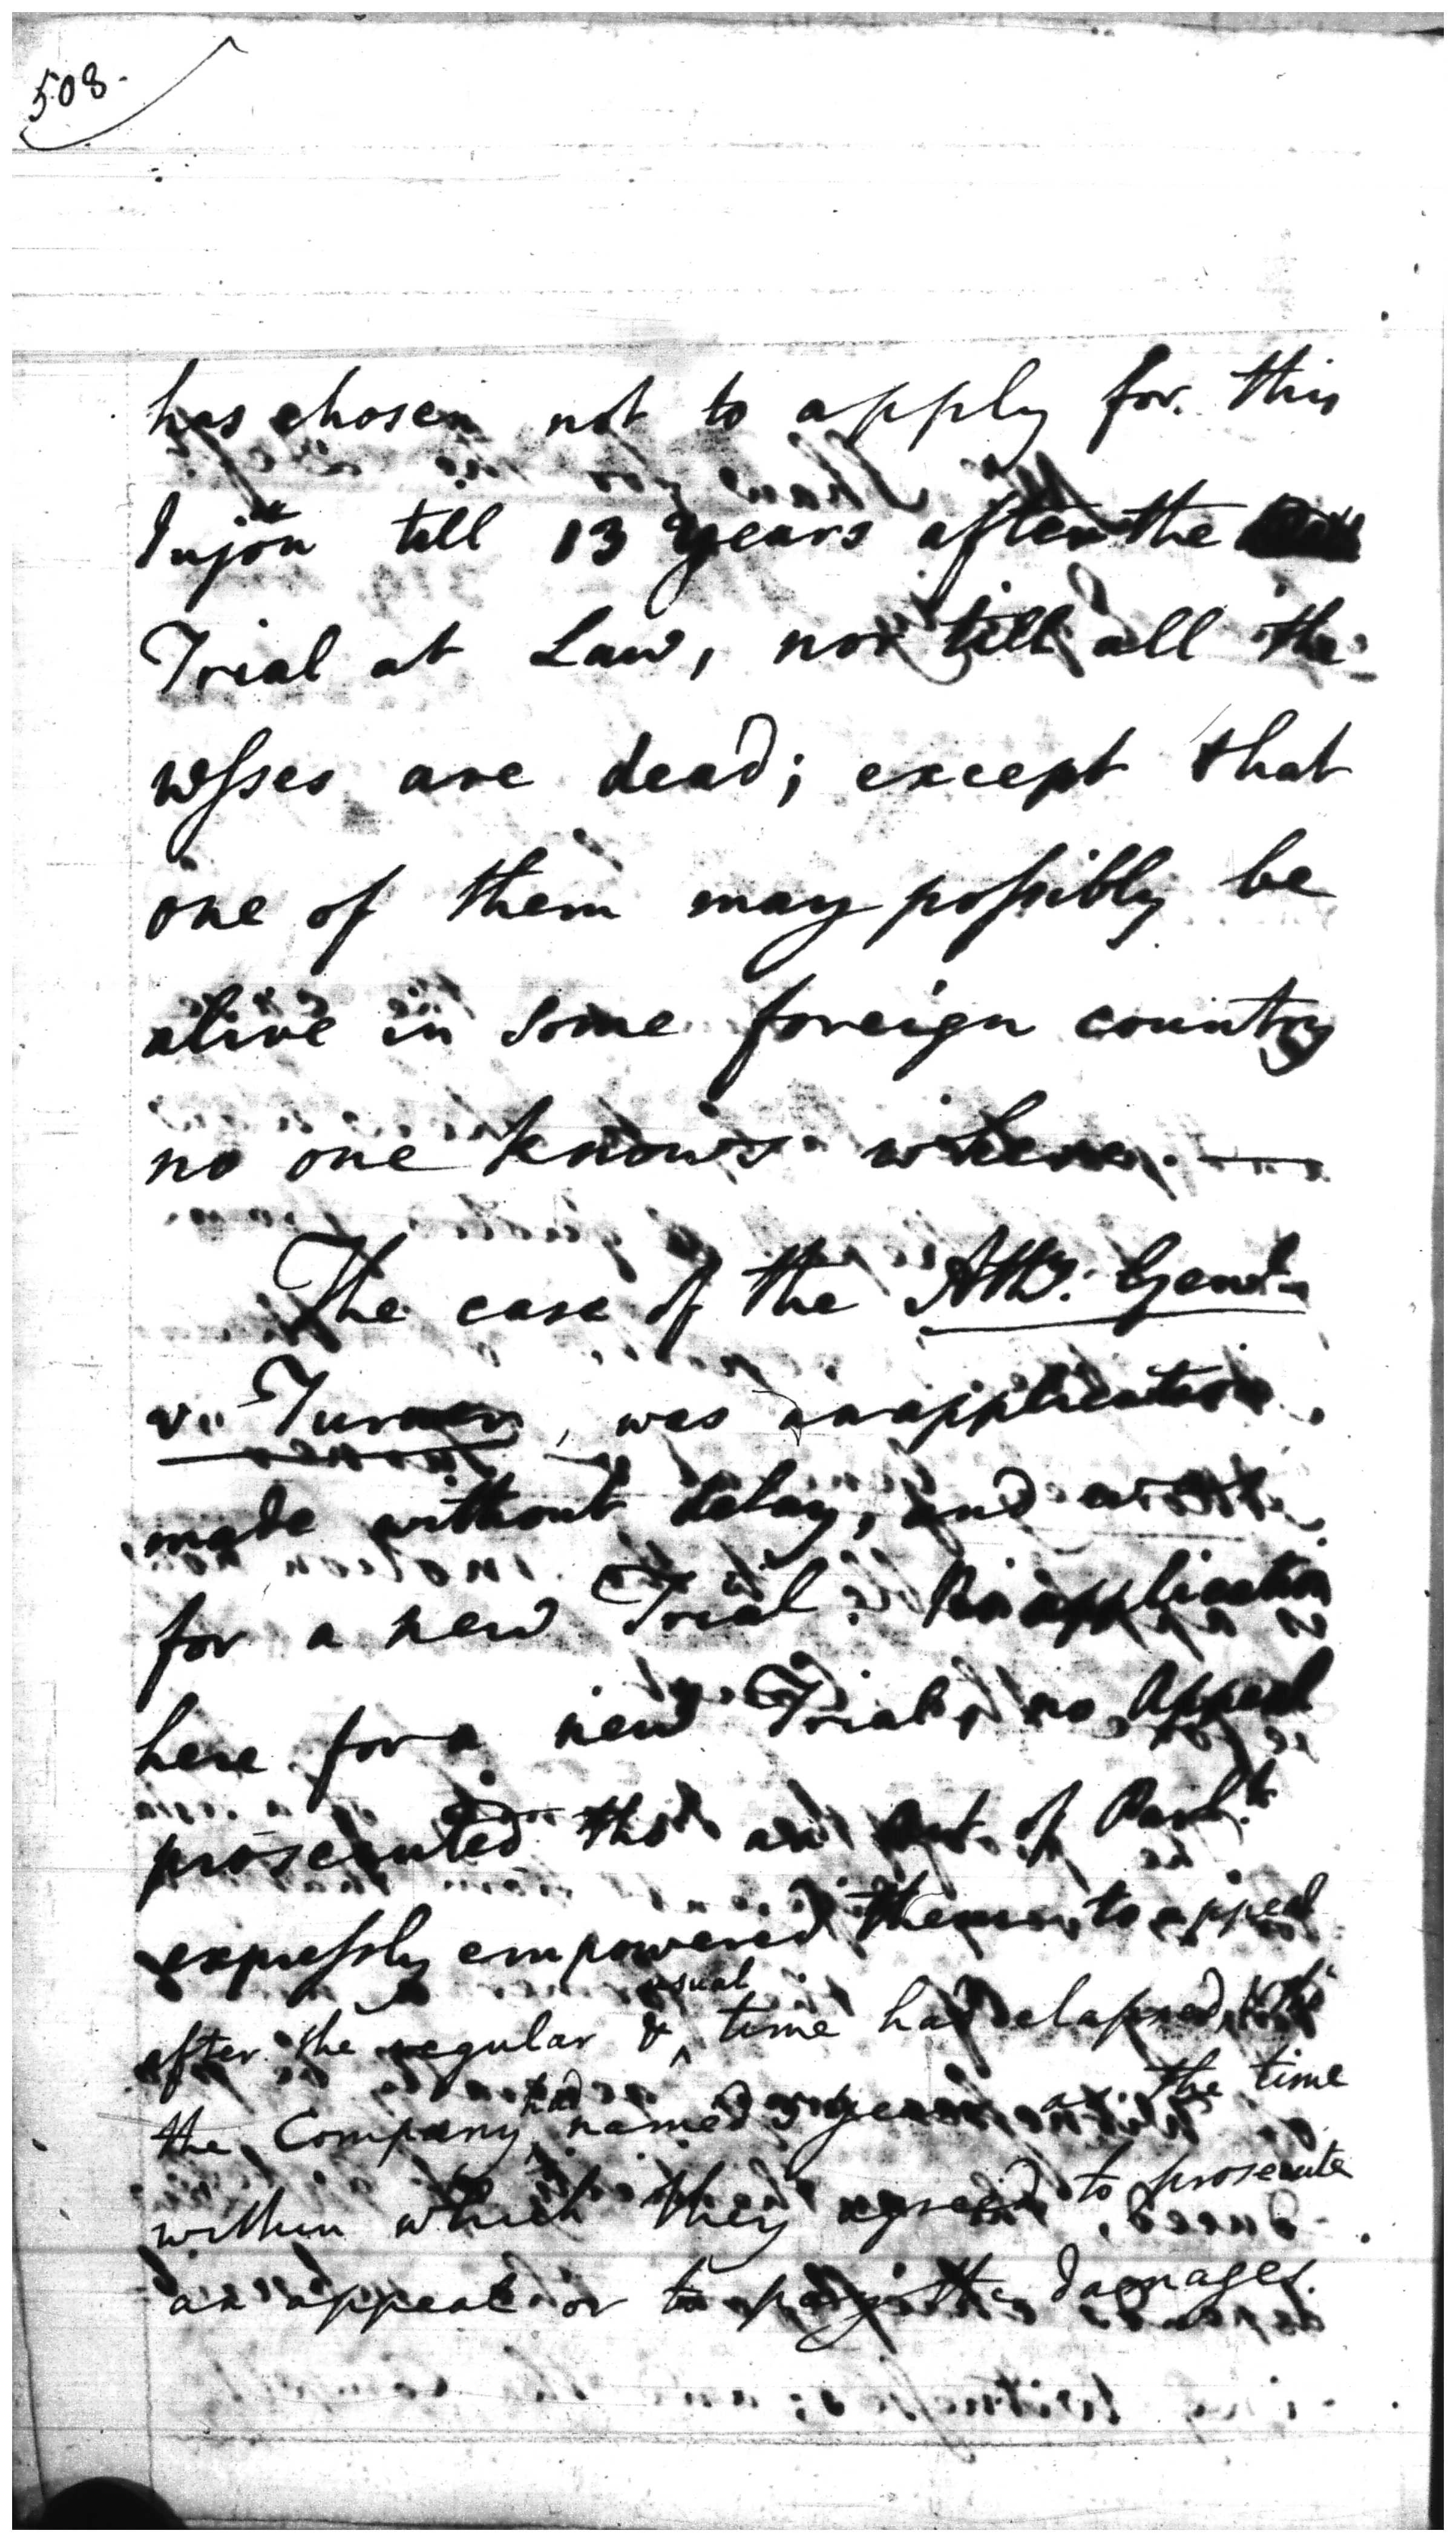 508.
has chosen not to apply for this
Injōn till 13 years after the
Trial at Law, nor till all the
wſses are dead; except that
one of them may poſsibly be
alive in some foreign country
no one knows where. —
The case of the Atty. Genl.
v. Turner, was an application
made without delay, and
for a new Trial. No application
here for a new Trial, no Appeal
prosecuted tho' an Act of Parlt.
expreſsly empowered them to appeal
after the regular & usual time had elapsed, & tho'
the Company had named 3 years as the time
within which they agreed to prosecute
an appeal or to pay the Damages.